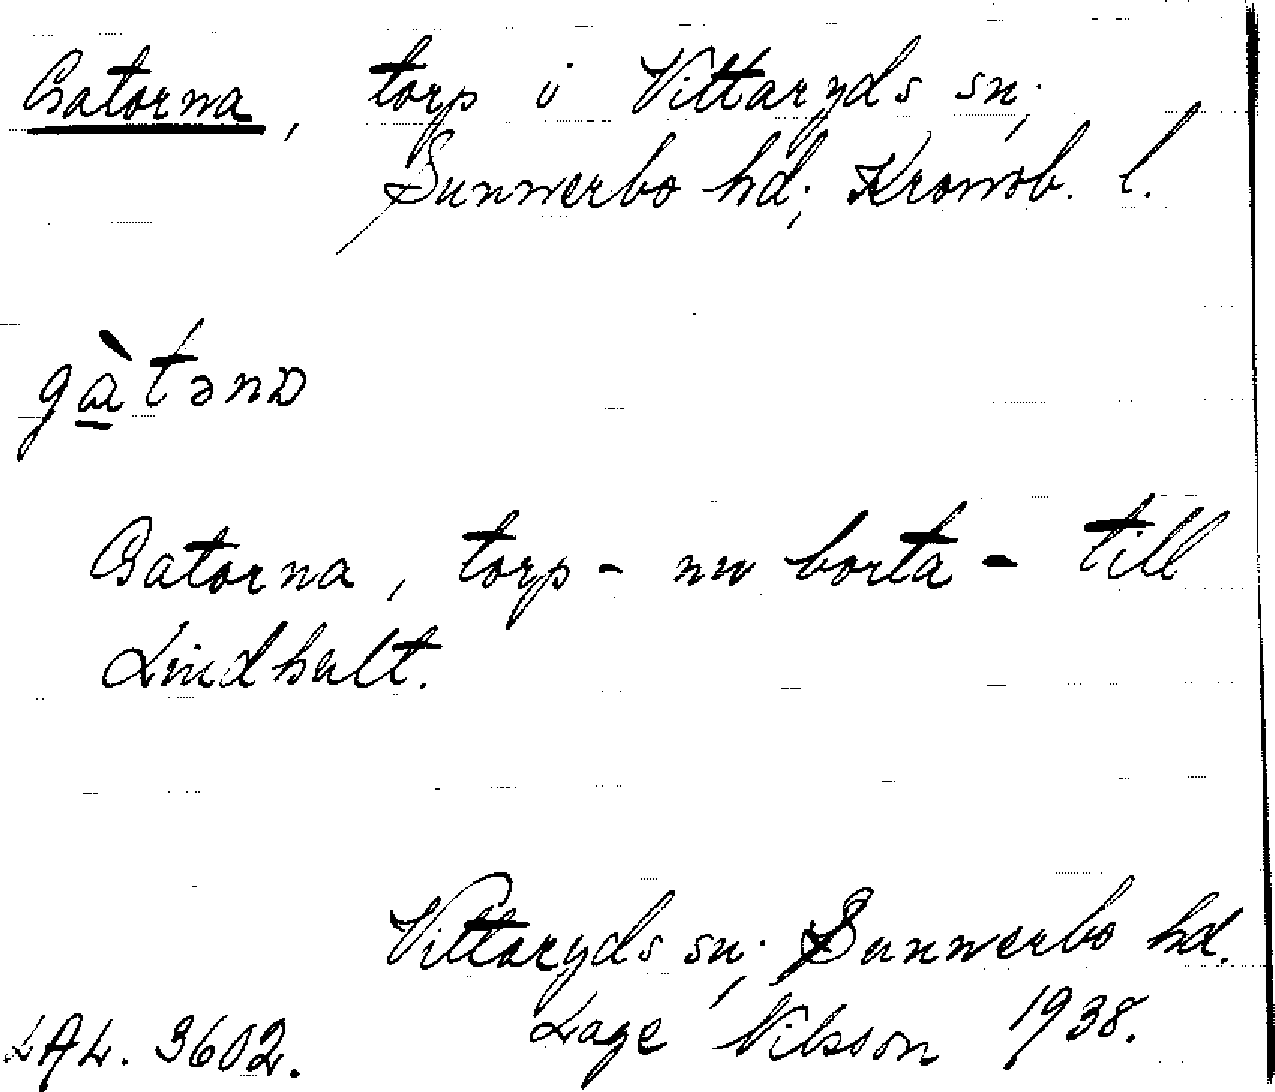 Gatorna, torp i Vittaryds sn;
Sunnerbo hd; Kronob. l.
gàtənɒ
Gatorna, torp - nu borta - till
Lindhult.
Vittaryds sn; Sunnerbo hd.
LAL. 3602. Lage Nilsson 1938.